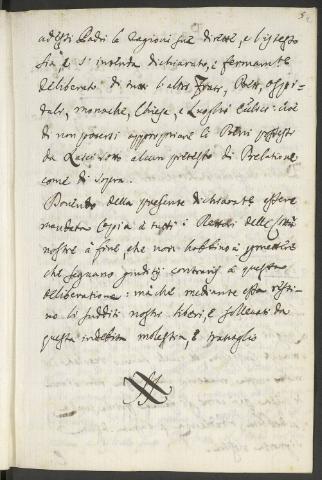 ad essi Padri le ragioni sue dirette, e l'istesso
sia, e s'intenda dichiarato, e fermamente
deliberato di tutti l'altri Frati, Preti, Ospi-
tali, monache, Chiese, e Luoghi Eccl.ci: cioè
di non potersi appropriare li Beni possessi
da Laici sotto alcun pretesto di Prelatione
come di sopra.
Dovendo della presente dichiarat.e essere
mandata Coppia à tutti i Rettori delle Città
nostre à fine, che non habbino à permettere
che seguano giuditij contrarij à questa
deliberatione: mà che mediante essa resti-
no li sudditi nostri liberi, e sollevati da
questa indebita molestia, e travaglio